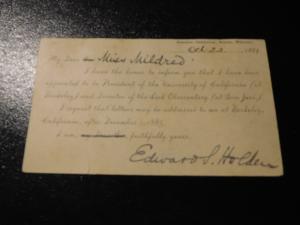 Oct 22, 188
My Dear Miss Mildred:
I have the honor to inform you that I have been
appointed to be President of the University of California (at
Berkeley) and Director of the Lick Observatory (at San José).
I request that letters may be addressed to me at Berkeley,
California, after December 1, 1885.
I am, faithfully yours,
Edward S. Holden